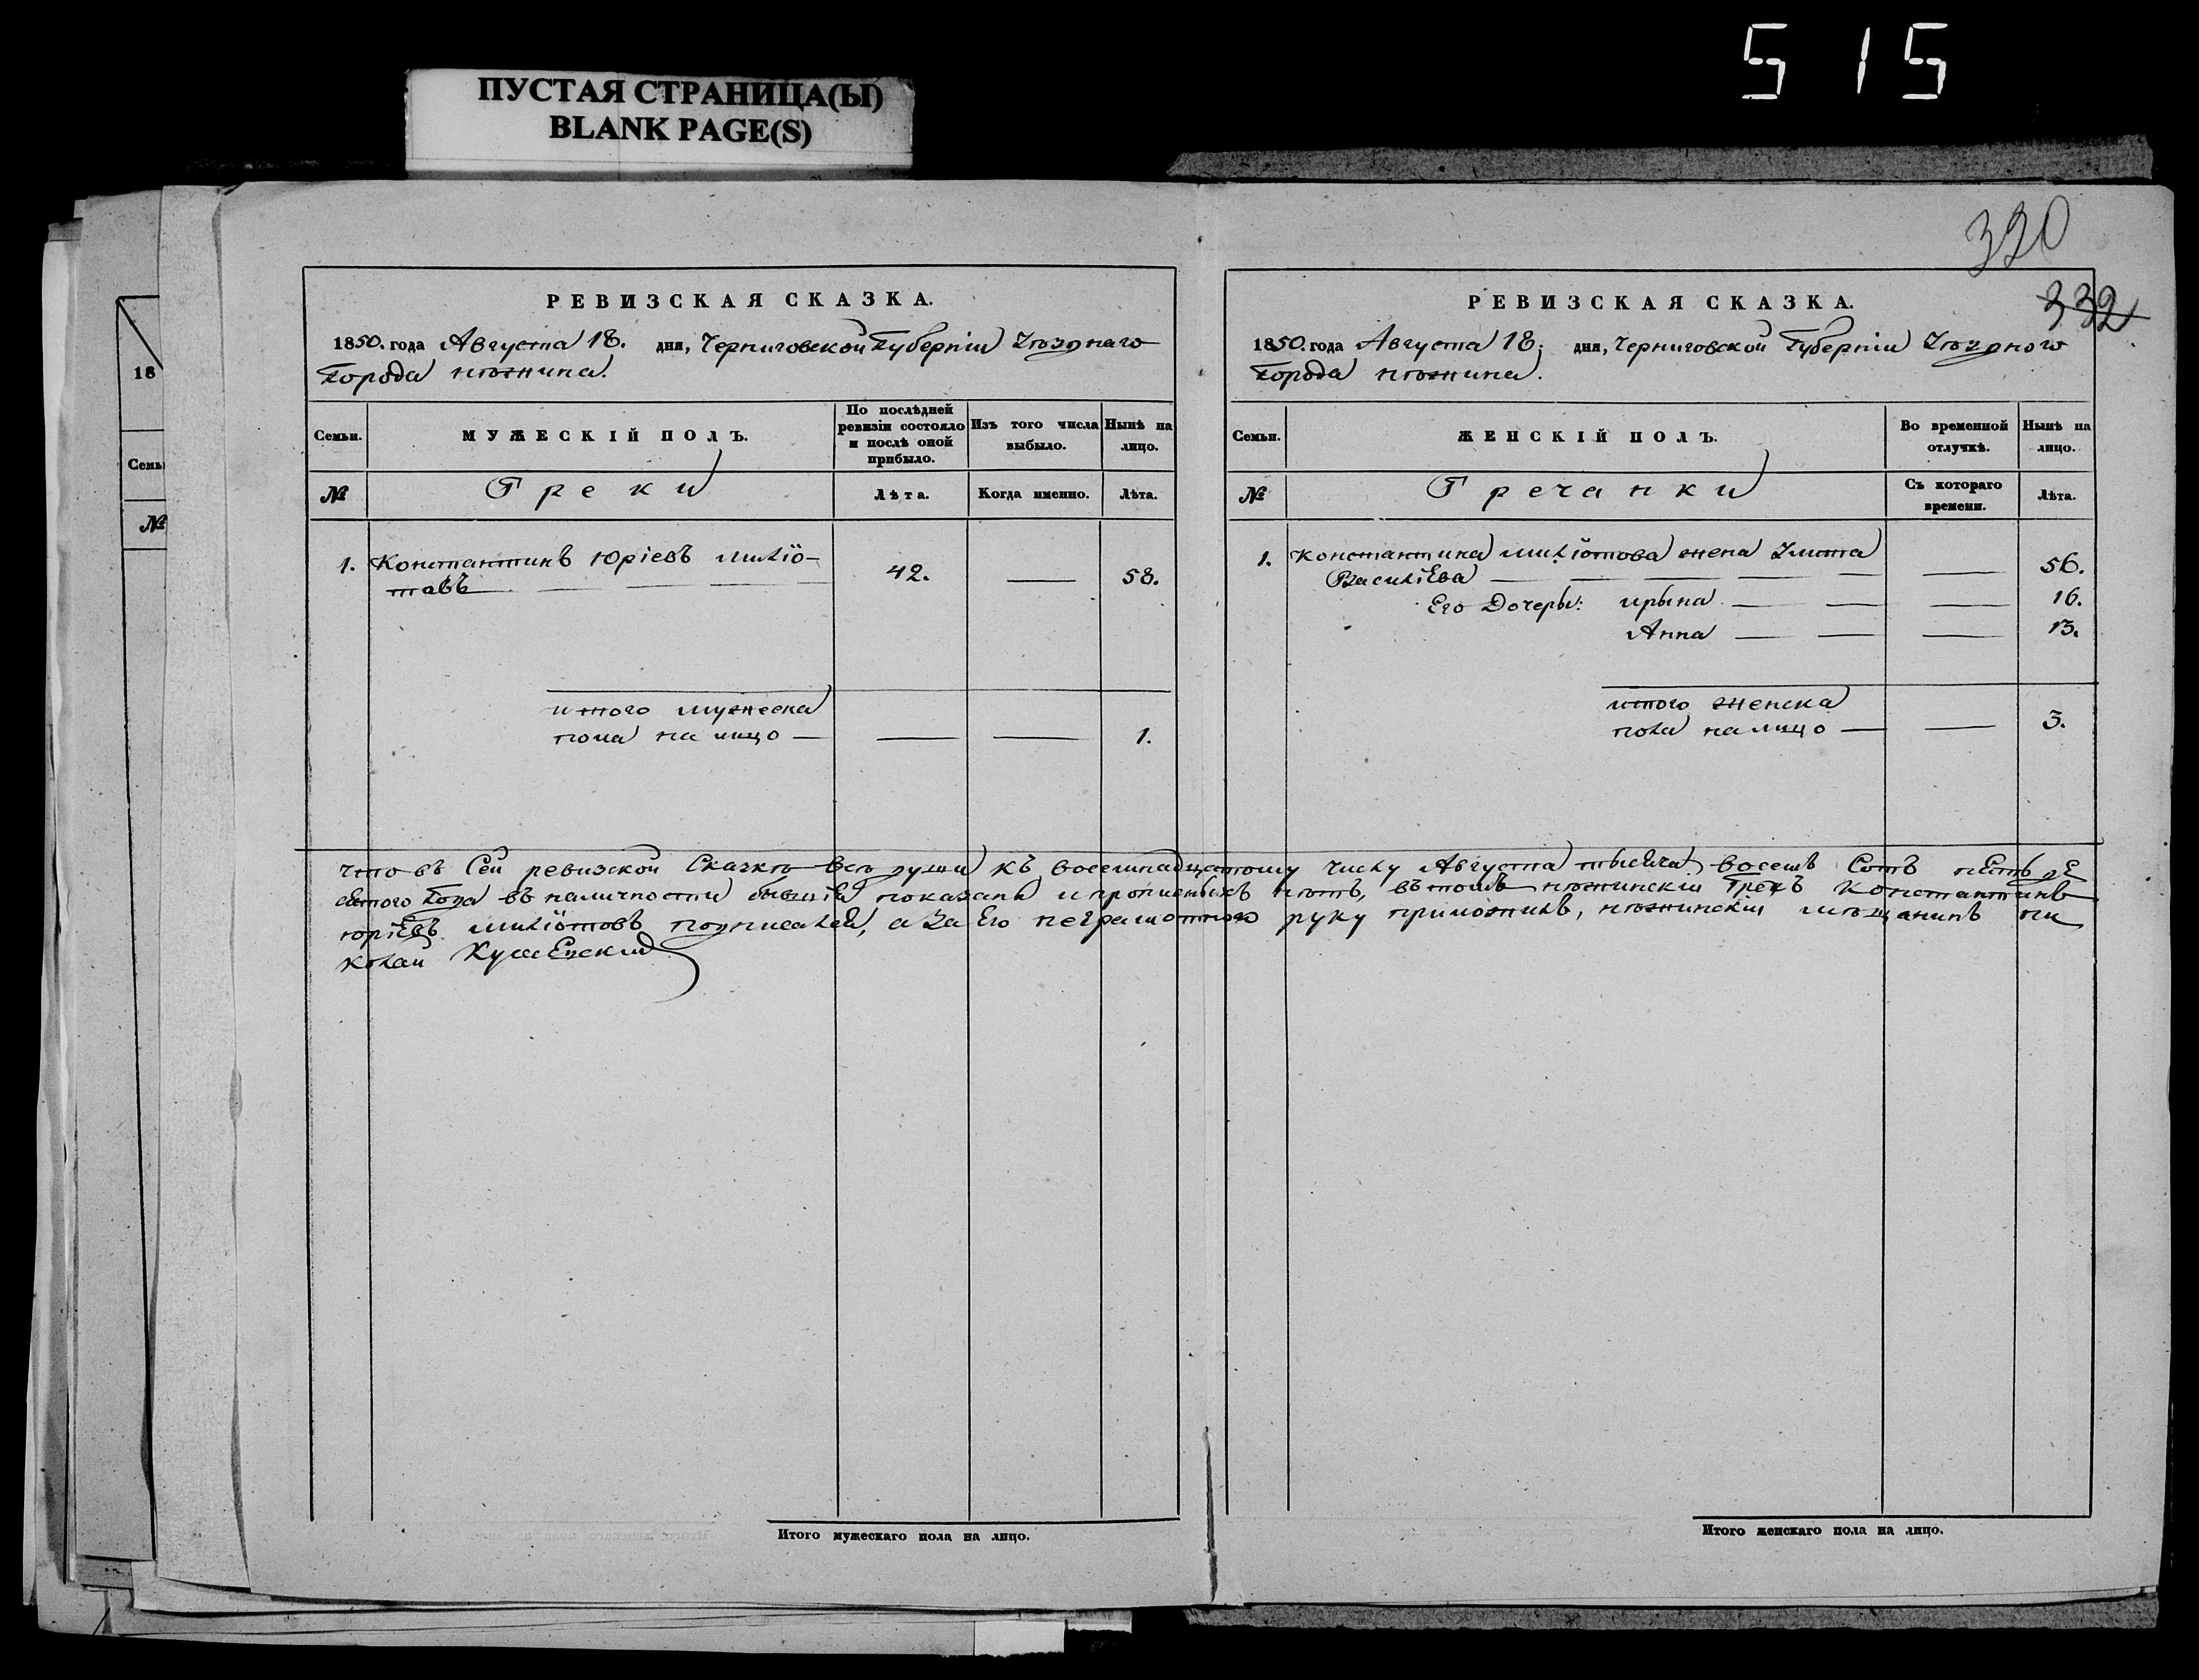 515
ПУСТАЯ СТРАНИЦА(Ы)
BLANK PAGE(S)
320
332
18
Семьи
№
РЕВИЗСКАЯ СКАЗКА.
1850. года Августа 18. дня, Черниговской Губерніи Уѣзднаго
Города Нѣжина.
Семьи.
МУЖЕСКІЙ ПОЛЪ.
По послѣдней
ревизіи состояло
и послѣ оной
прибыло.
Изъ того числа
выбыло.
Нынѣ на
лицо.
№
Греки
Лѣта.
Когда именно.
Лѣта.
1. Константинъ Юріевъ Миліо-
товъ 42. — 58.
итого мужеска
пола на лицо — — — 1.
РЕВИЗСКАЯ СКАЗКА.
1850. года Августа 18. дня, Черниговской Губерніи Уѣзднаго
Города Нѣжина.
Семьи.
ЖЕНСКІЙ ПОЛЪ.
Во временной
отлучкѣ.
Нынѣ на
лицо.
№
Гречанки
Съ котораго
времени.
Лѣта.
1. Константина Миліотова жена
Василіева — 56.
Его Дочеры: Ирына — — 16.
Анна — — 13.
итого женска
пола на лицо — — 3.
Что въ Сей ревизской Сказкѣ всѣ души къ восемнадцатому числу Августа тысяча восемь Сотъ пятьде
сятого Года въ наличности бывшія показаны и прописныхъ нѣтъ, въ томъ нѣжинскій Грекъ Константинъ
Юріевъ Миліотовъ подписался, а За Его неграмотного руку приложилъ, нѣжинскій мѣщанинъ Ни
колай
Итого мужескаго пола на лицо.
Итого женскаго пола на лицо.